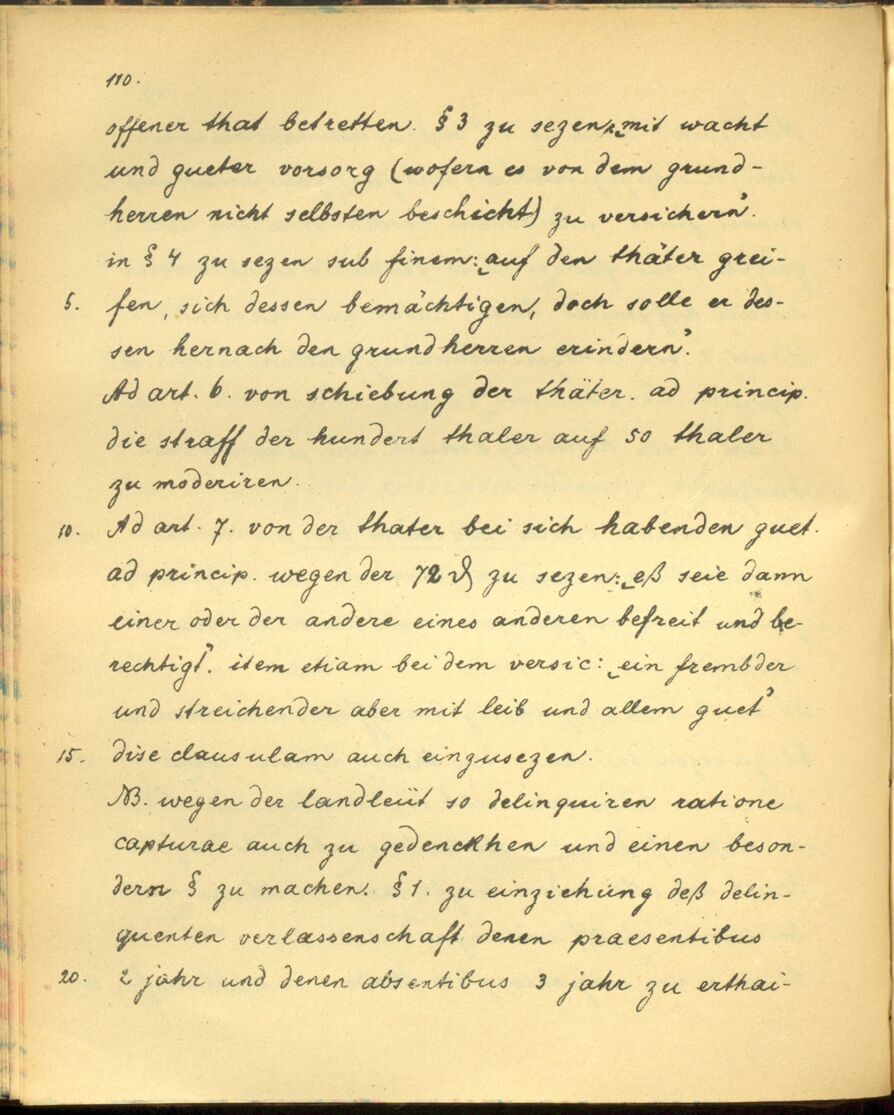 110.
offener that betretten. § 3 zu sezen: „mit wacht
und gueter vorsorg (wofern es von dem grund-
herren nicht selbsten beschicht) zu versichern”.
in § 4 zu sezen sub finem: „auf den thäter grei-
5. fen, sich dessen bemächtigen, doch solle er des-
sen hernach den grundherren erindern”.
Ad art. 6. von schiebung der thäter. ad princip.
die straff der hundert thaler auf 50 thaler
zu moderiren.
10. Ad art. 7. von der thater bei sich habenden guet.
ad princip. wegen der 72 ₰ zu sezen: „eß seie dann
einer oder der andere eines anderen befreit und be-
rechtigt”. item etiam bei dem versic: „ein frembder
und streichender aber mit leib und allem guet”
15. dise clausulam auch einzusezen.
NB. wegen der landleüt so delinquiren ratione
capturae auch zu gedenckhen und einen beson-
dern § zu machen. § 1. zu einziehung deß delin-
quenten verlassenschaft denen praesentibus
20. 2 jahr und denen absentibus 3 jahr zu erthai-